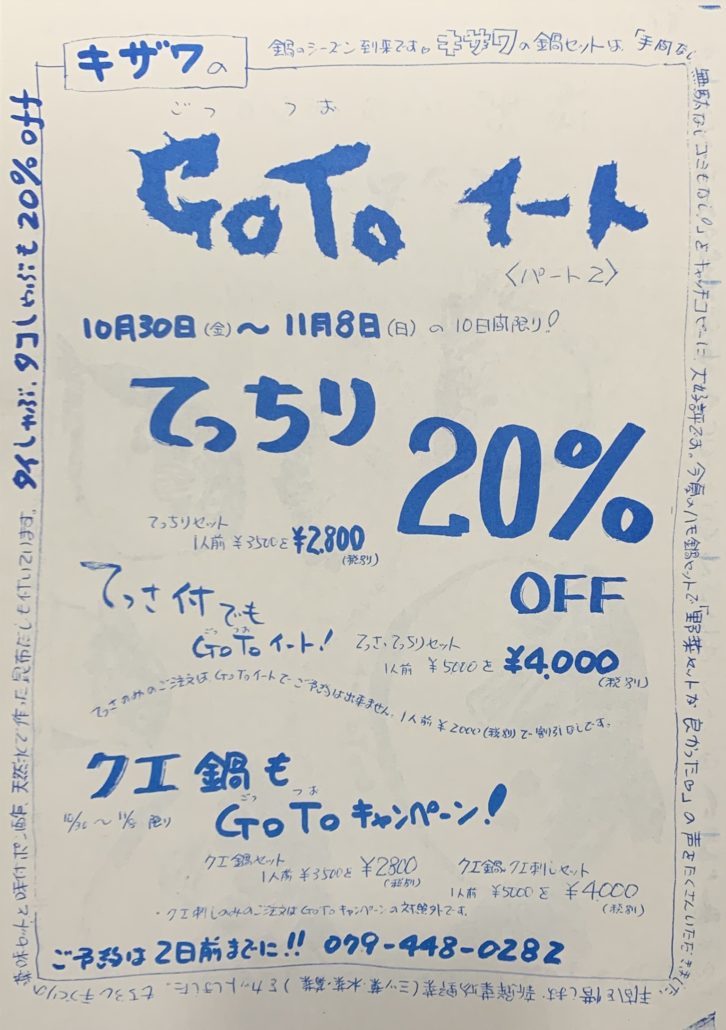 キザワの
鍋のシーズン到来です。キザワの鍋セットは、「手間なし
無駄なしゴミもなし!」をキャッチコピーに大好評です。今夏のハモ鍋セットで「野菜セットが良かった」の声をたくさんいただきました。
ごっつお
GoTo イート
〈パート2〉
10月30日(金)〜11月8日(日)の10日間限り!
てっちり
20%
OFF
てっちりセット
1人前 ¥3500を¥2,800
(税別)
てっさ付でも
ごっつお
GoToイート!
てっさ・てっちりセット
1人前 ¥5000を ¥4,000
(税別)
てっさのみのご注文はGoToイートでご予約は出来ません。1人前¥2000(税別)で割引なしです。
クエ鍋も
10/30〜11/8限り
ごっつお
GoToキャンペーン!
クエ鍋セット
1人前 ¥3500を ¥2800
(税別)
クエ鍋・クエ刺しセット
1人前 ¥5000を ¥4,000
(税別)
・クエ刺しのみのご注文はGoToキャンペーンの対象外です。
ご予約は2日前までに!! 079-448-0282
新鮮野菜(ミツ葉・水菜・菊菜)をカットしました。もちろん手づくりの
薬味セットと味付ポン酢、天然水で作った昆布だしも付いています。タイしゃぶ、タコしゃぶも20%off